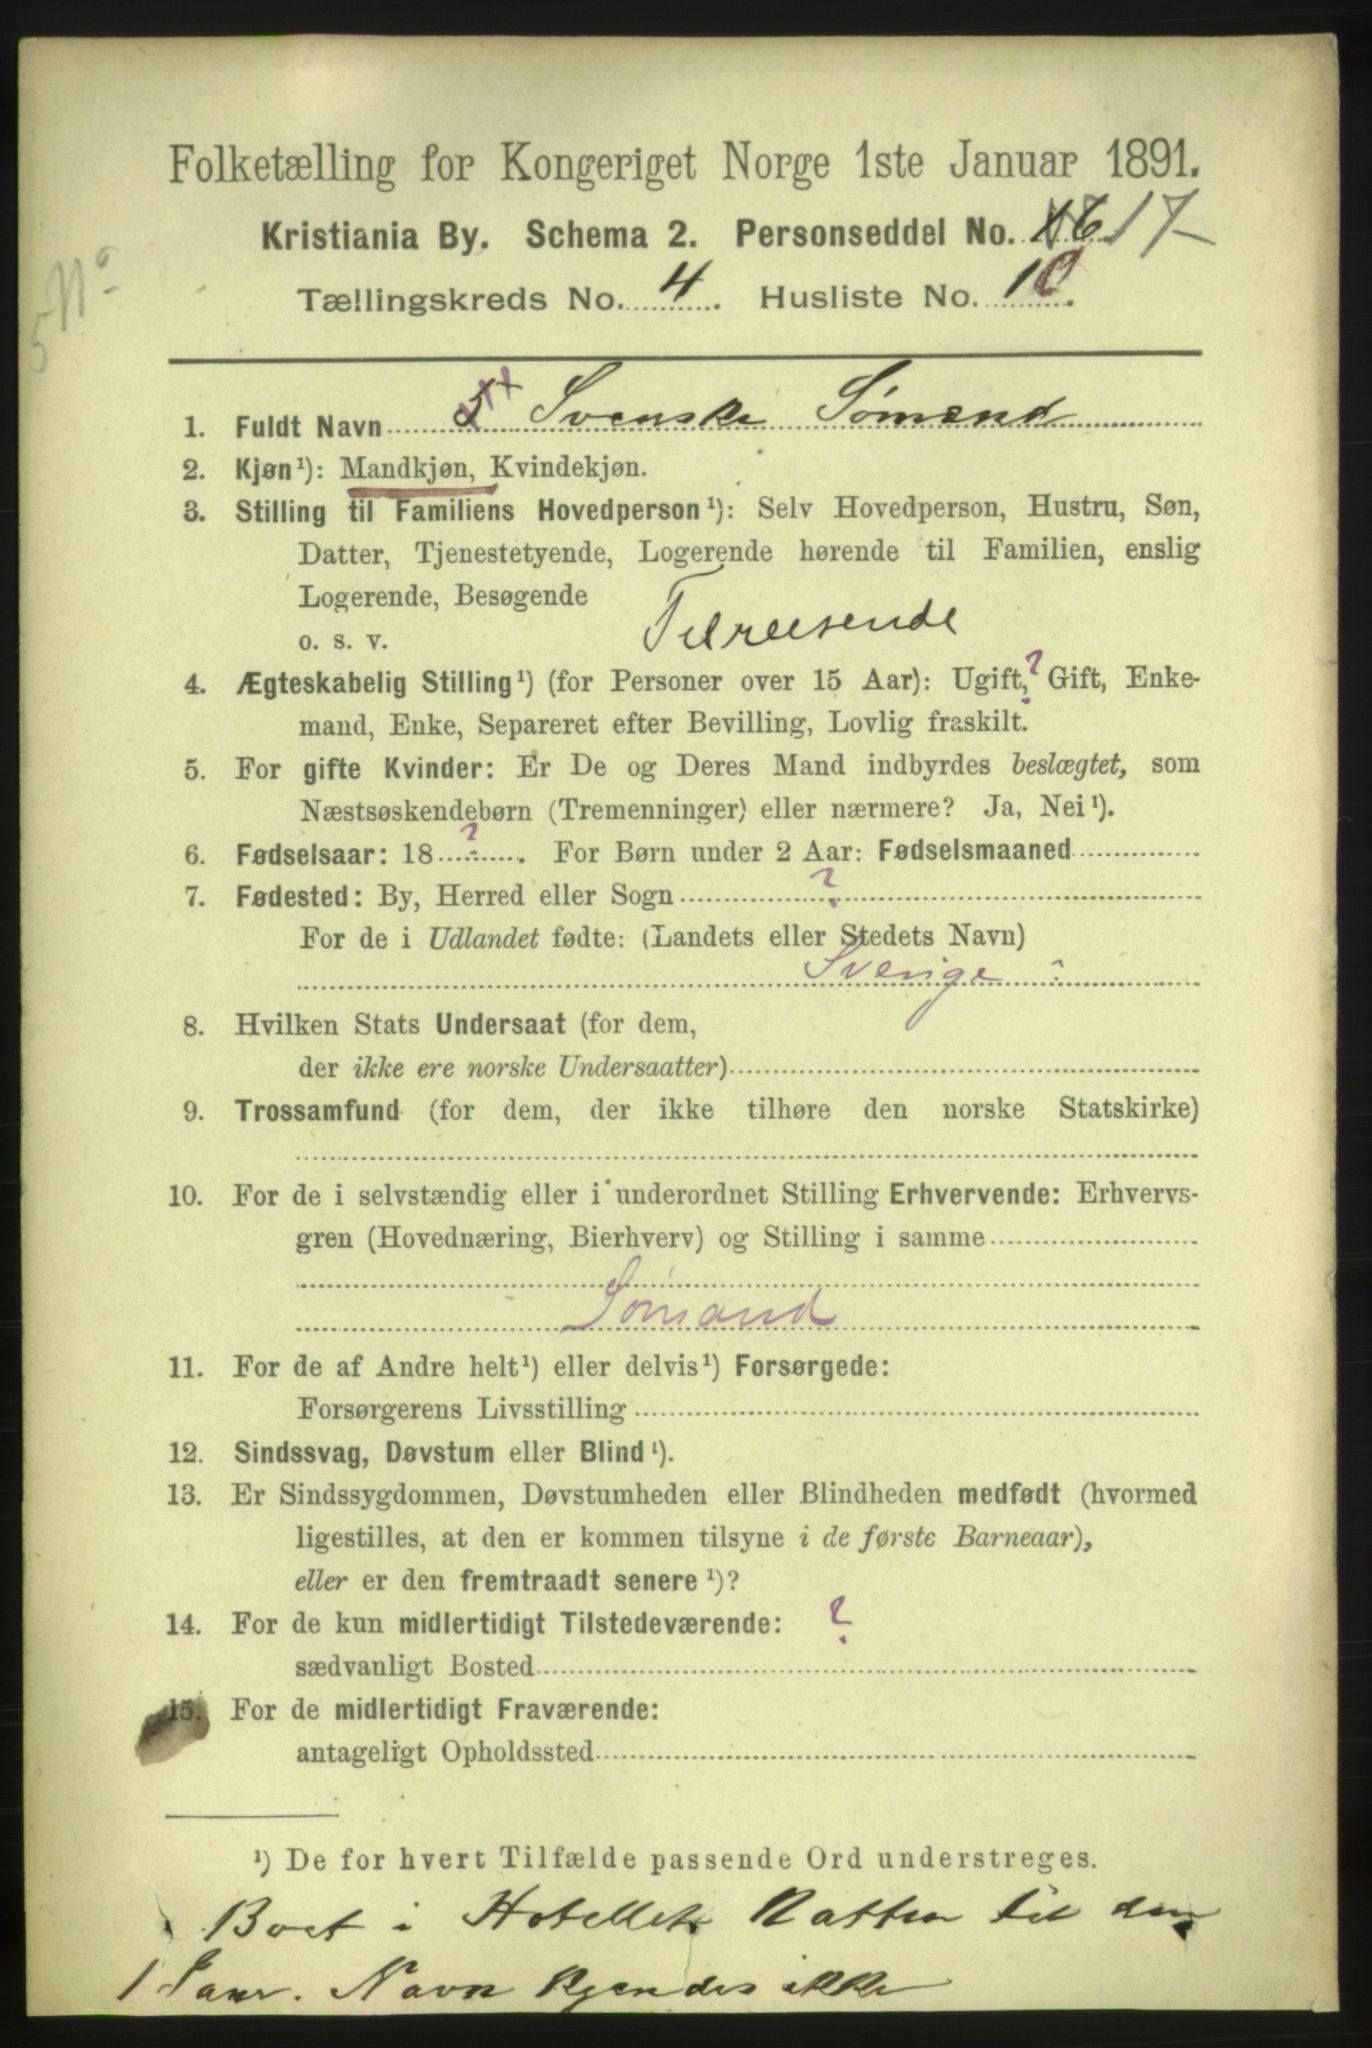 Folketælling for Kongeriget Norge 1ste Januar 1891.
Kristiania By. Schema 2. Personseddel No. 16 17
Tællingskreds No. 4. Husliste No. 10.
No
5
1. Fuldt Navn 5 Svenske Sømænd
2. Kjøn¹): Mandkjøn, Kvindekjøn.
3. Stilling til Familiens Hovedperson¹): Selv Hovedperson, Hustru, Søn,
Datter, Tjenestetyende, Logerende hørende til Familien, enslig
Logerende, Besøgende
o. s. v. Tilreisende
4. Ægteskabelig Stilling¹) (for Personer over 15 Aar): Ugift, ? Gift, Enke-
mand, Enke, Separeret efter Bevilling, Lovlig fraskilt.
5. For gifte Kvinder: Er De og Deres Mand indbyrdes beslægtet, som
Næstsøskendebørn (Tremenninger) eller nærmere? Ja, Nei¹).
6. Fødselsaar: 18 ? . For Børn under 2 Aar: Fødselsmaaned
7. Fødested: By, Herred eller Sogn ?
For de i Udlandet fødte: (Landets eller Stedets Navn)
Sverige
8. Hvilken Stats Undersaat (for dem,
der ikke ere norske Undersaatter)
9. Trossamfund (for dem, der ikke tilhøre den norske Statskirke)
10. For de i selvstændig eller i underordnet Stilling Erhvervende: Erhvervs-
gren (Hovednæring, Bierhverv) og Stilling i samme
Sømand
11. For de af Andre helt¹) eller delvis¹) Forsørgede:
Forsørgerens Livsstilling
12. Sindssvag, Døvstum eller Blind¹).
13. Er Sindssygdommen, Døvstumheden eller Blindheden medfødt (hvormed
ligestilles, at den er kommen tilsyne i de første Barneaar),
eller er den fremtraadt senere¹)?
14. For de kun midlertidigt Tilstedeværende: ?
sædvanligt Bosted
15. For de midlertidigt Fraværende:
antageligt Opholdssted
¹) De for hvert Tilfælde passende Ord understreges.
Boet i Hotellet Natten til den
1 Janr. Navn kjendes ikke